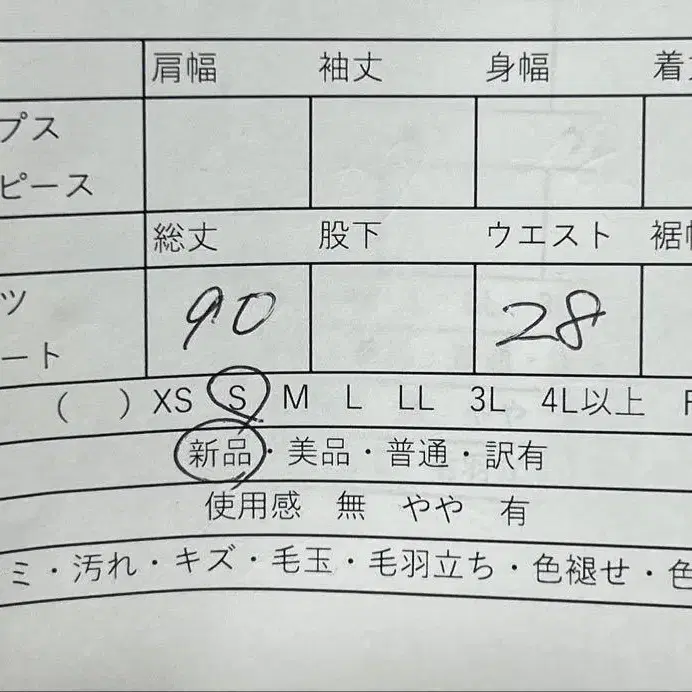 肩幅 袖丈 身幅 着
プス
ピース
総丈 股下 ウエスト 裾
ツ 90 28
ート
( ) XS S M L LL 3L 4L以上 F
新品・美品・普通・訳有
使用感 無 やや 有
ミ・汚れ・キズ・毛玉・毛羽立ち・色褪せ・色